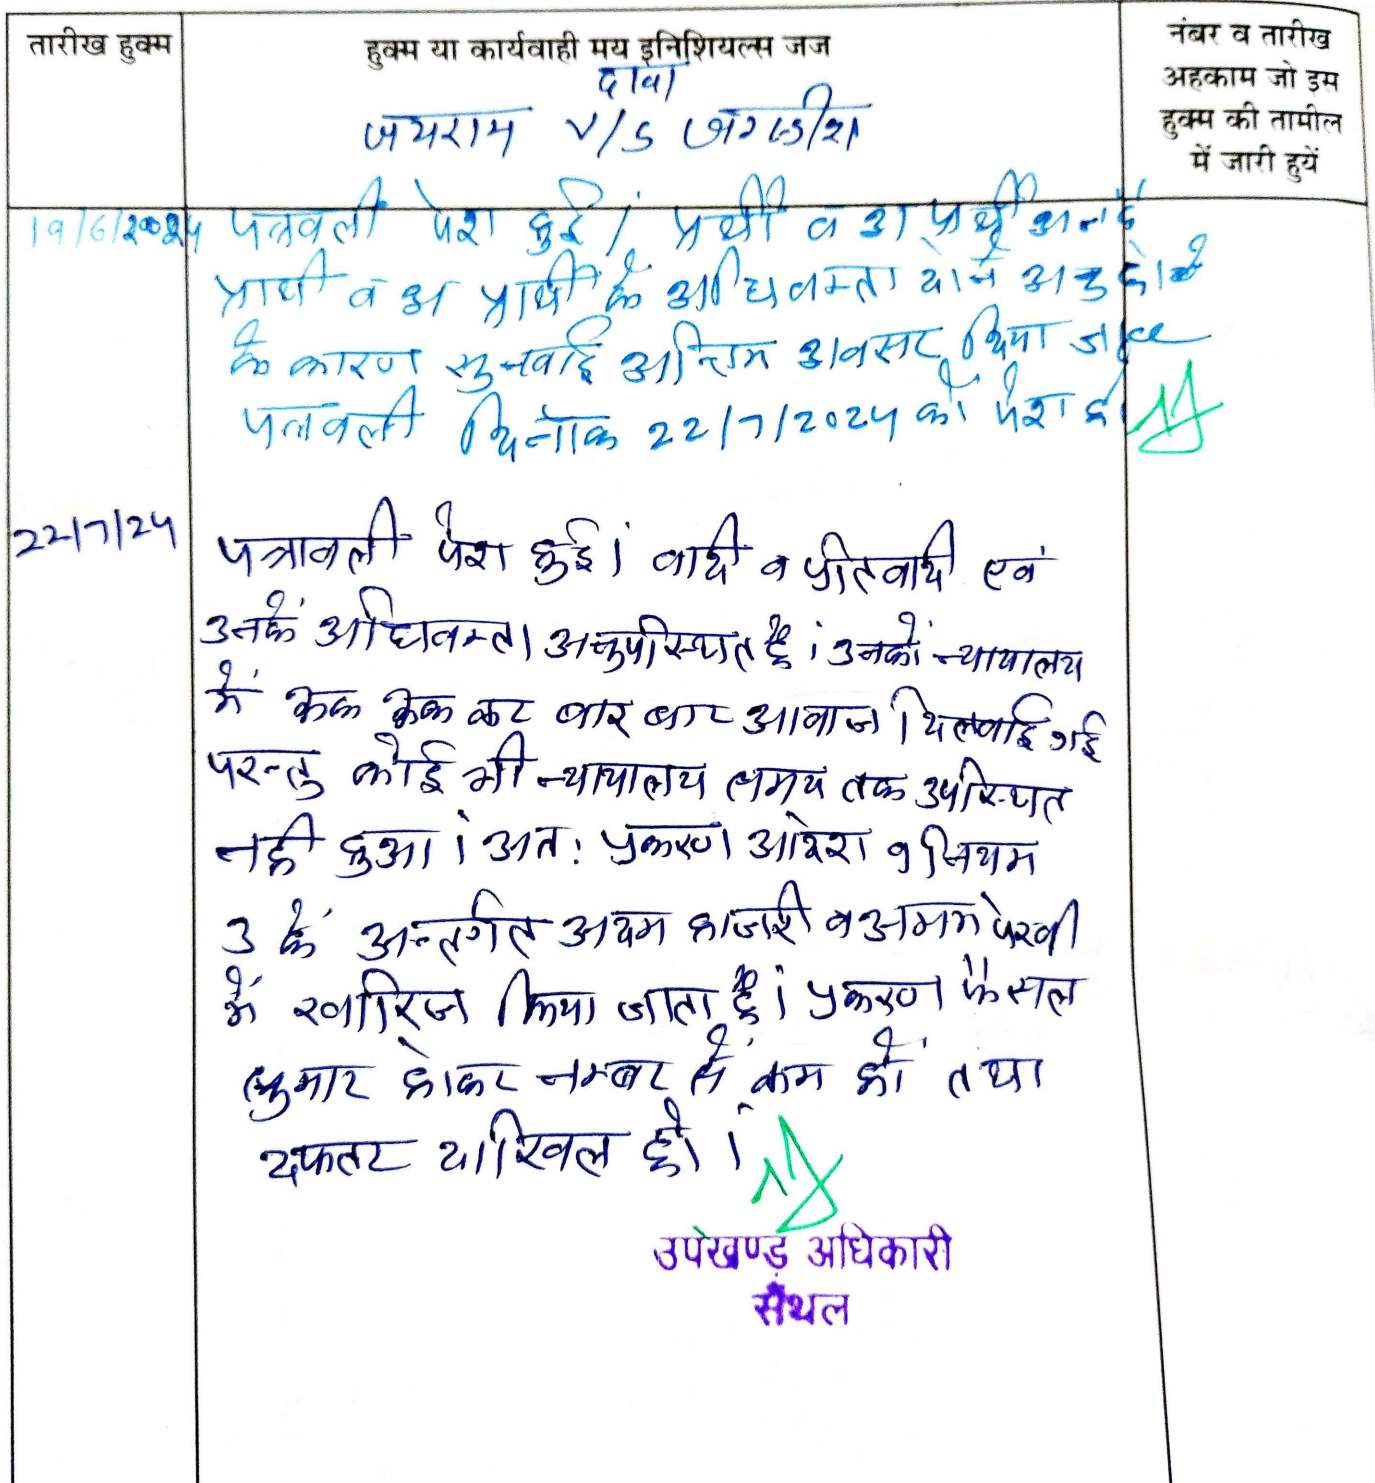 तारीख हुक्म
हुक्म या कार्यवाही मय इनिशियल्स जज
नंबर व तारीख
अहकाम जो इस
हुक्म की तामील
में जारी हुयें
दावा
जयराम v/s जगदीश
19/6/2024 पत्रवली पेश हुई। प्रार्थी व अप्रार्थी
प्रार्थी व अप्रार्थी के अधिवक्ता
के कारण सुनवाई अन्तिम अवसर दिया
पत्रवली दिनांक 22/7/2024 को पेश हो
22/7/24
पत्रावली पेश हुई। वादी व प्रतिवादी एवं
उनके अधिवक्ता अनुपस्थित है। उनको न्यायालय
में रूक रूक कर बार बार आवाज दिलवाई गई
परन्तु कोई भी न्यायालय समय तक उपस्थित
नही हुआ। अत: प्रकरण आदेश 9 नियम
3 के अन्तर्गत अदम हाजरी व अदम पेरवी
में खारिज किया जाता है। प्रकरण फैसल
शुमार होकर नम्बर से कम हो तथा
दफतर दाखिल हो।
उपखण्ड अधिकारी
सैंथल